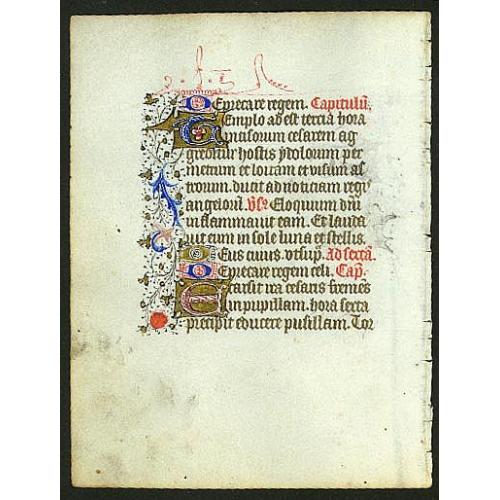 Deprecare regem. Capitulū.
Templo abest tercia hora
intisorum cesarem ag
greditur hostis ydolorum per
metrum et loicam et visum as
trorum. ducit ad noticiam regē
angelorū. Vs. Eloquium dnī
inflammavit eam. Et lauda
vit eum in sole luna et stellis.
Deus cuius. vt supª. Ad sextā.
Deprecare regem celi. Cap.
Tarsit ira cesaris frenies
in pupillam. hora sexta
precipit educere pusillam. Tor